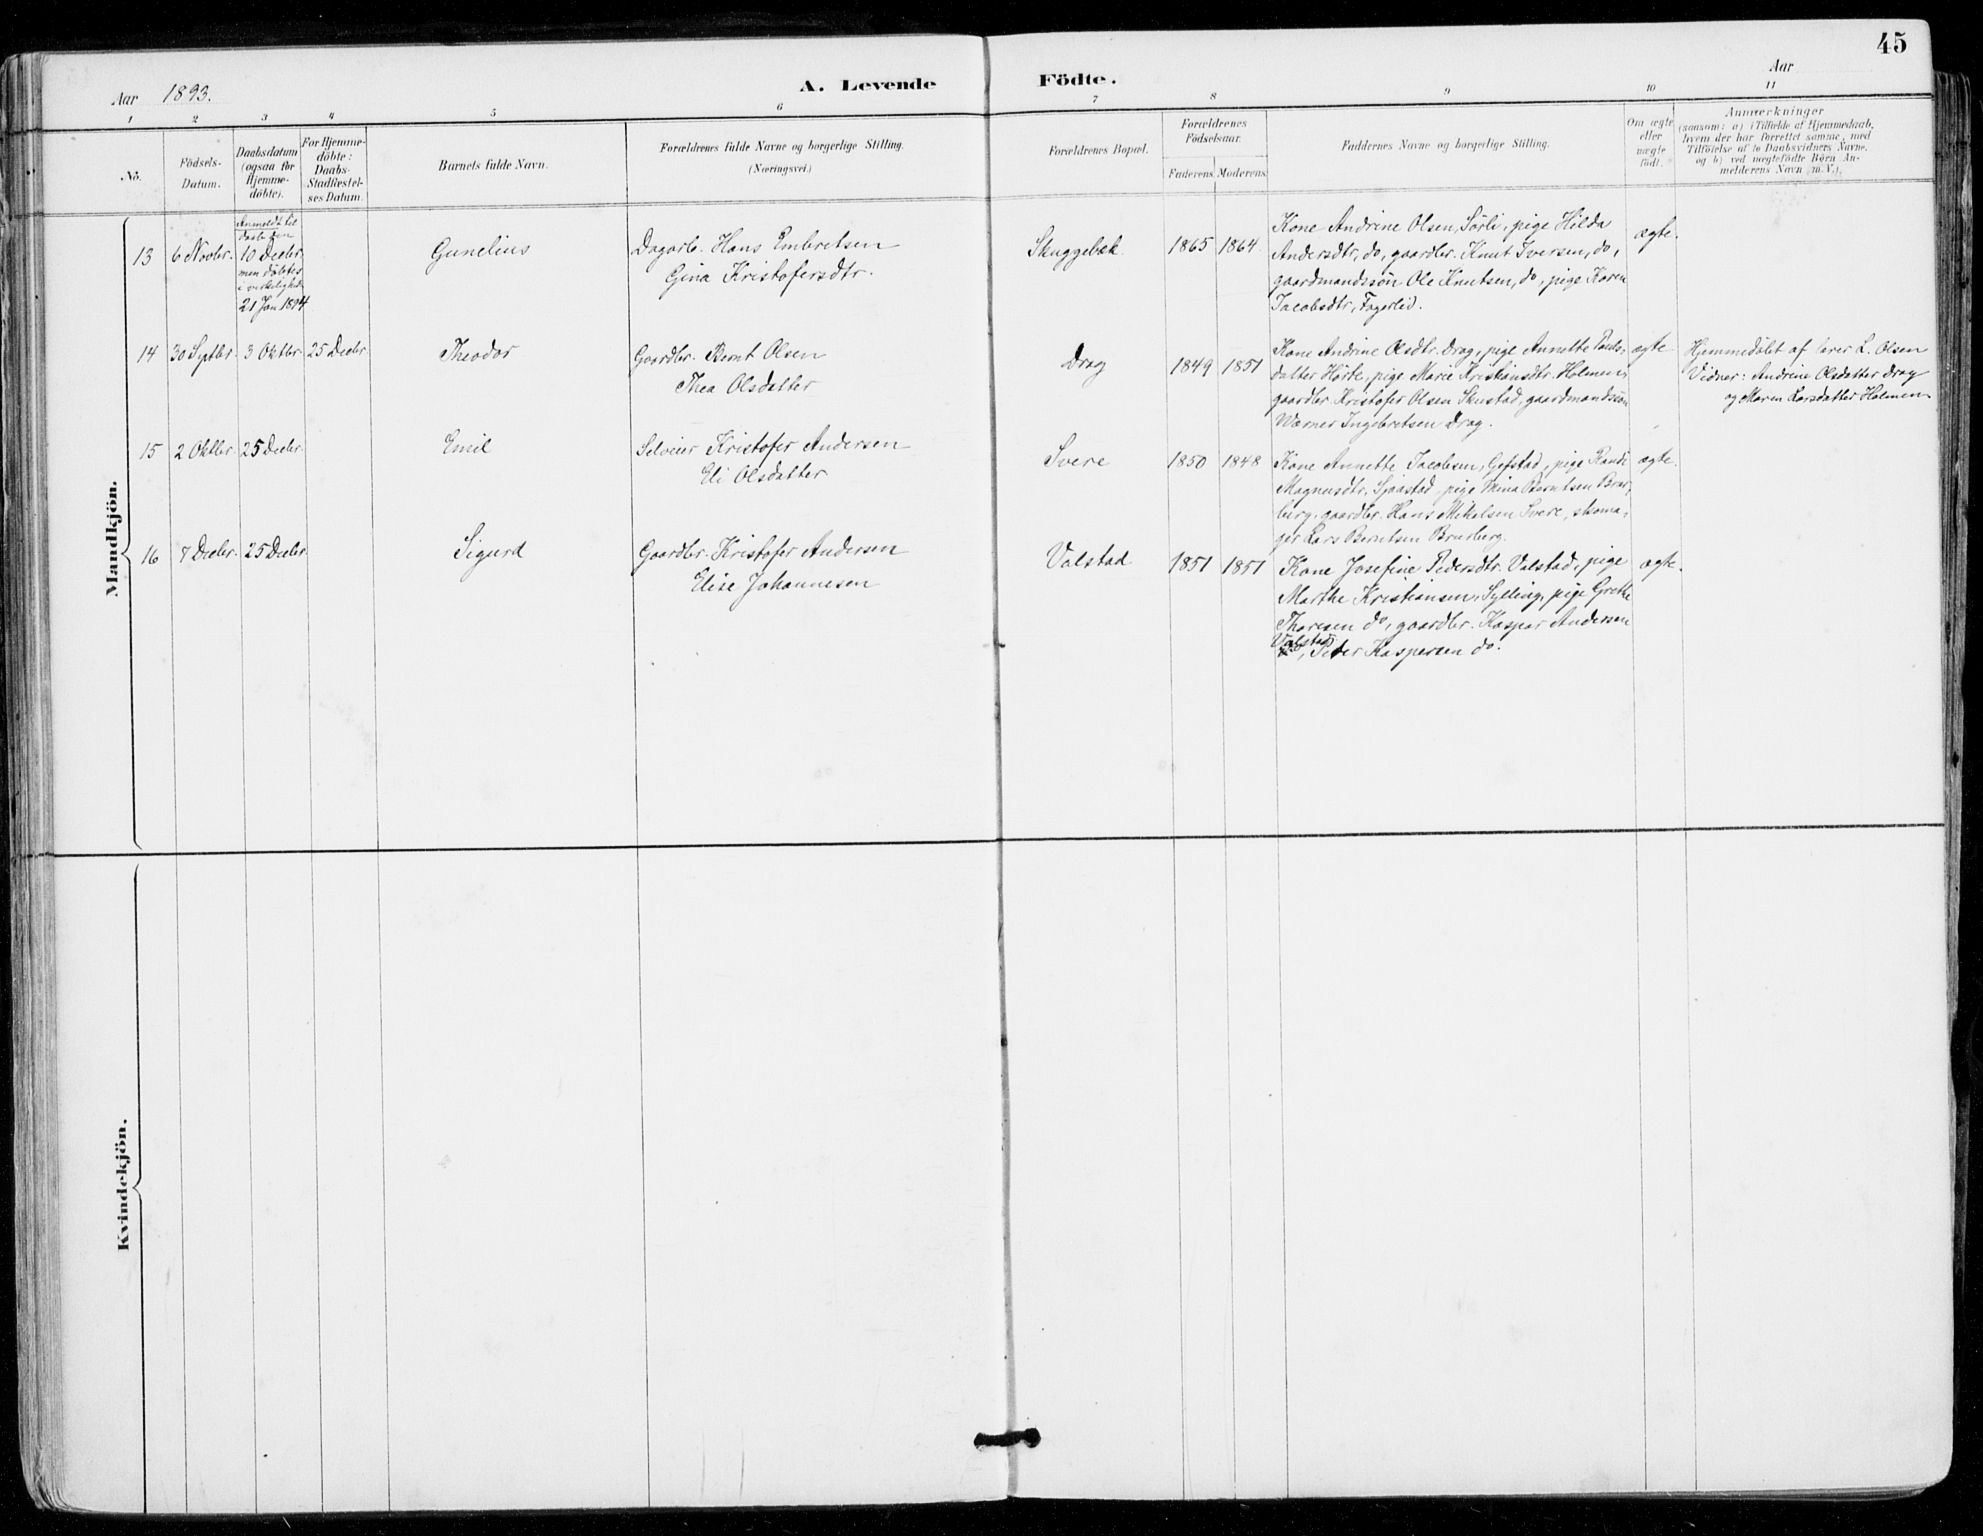 45
Aar 1893.
A. Levende Födte.
Aar
1 2 3 4 5 6 7 8 9 10 11
No.
Födsels-
Datum.
Daabsdatum
(ogsaa for
Hjemme-
döbte).
For Hjemme-
döbte:
Daabs-
Stadfæstel-
ses Datum.
Barnets fulde Navn.
Forældrenes fulde Navne og borgerlige Stilling.
(Næringsvei.)
Forældrenes Bopæl.
Forældrenes
Födselsaar.
Faderens. Moderens.
Faddernes Navne og borgerlige Stilling.
Om ægte
eller
uægte
födt.
Anmærkninger
(saasom: a) i Tilfælde af Hjemmedaab,
hvem der har forrettet samme, med
Tilföielse af to Daabsvidners Navne,
og b) ved uægtefödte Börn An-
melderens Navn (m. V.).
Mandkjön.
13
6 Novbr.
Anmeldt til
10 Decbr.
men döbtes
i
21 Jan 1894
Gunelius
Dagarb. Hans Embretsen
Gina Kristofersdtr.
Skuggebæk.
1865
1864.
Kone Andrine Olsen, Sörli, pige Hilda
Andersdtr, do, gaardbr. Knut Iversen, do,
gaardmandssön Ole Knutsen, do, pige Karen
Jacobsdtr, Fagerlid.
ægte.
14
30 Septbr.
3 Oktbr.
25 Decbr.
Theodor
Gaardbr. Bernt Olsen
Thea Olsdatter
Drag
1849
1851
Kone Andrine Olsdtr. Drag, pige Annette Pauls-
datter Hörte, pige Marie Kristiansdtr. Holmen,
gaardbr. Kristofer Olsen Skustad, gaardmandssön
Werner Ingebretsen Drag.
ægte
Hjemmedöbt af lærer L. Olsen
Vidner: Andrine Olsdatter Drag
og Maren Larsdatter Holmen
15
2 Oktbr.
25 Decbr.
Emil
Selveier Kristofer Andersen
Eli Olsdatter
Svere
1850
1848
Kone Annette Jacobsen, Gefstad, pige Randi
Magnusdtr, Sjaastad, pige Mina Berntsen Brur-
berg, gaardbr. Hans Mikelsen Svere, skoma-
ger Lars Berntsen Brurberg.
ægte.
16
7 Decbr.
25 Decbr.
Sigurd
Gaardbr. Kristofer Andersen
Elise Johannesen
Valstad
1851
1851
Kone Josefine Pedersdtr. Valstad, pige
Marthe Kristiansen, Sylling, pige Grethe
Thoresen do, gaardbr. Kaspar Andersen
Valstad, Peter Kaspersen do.
ægte.
Kvindekjön.